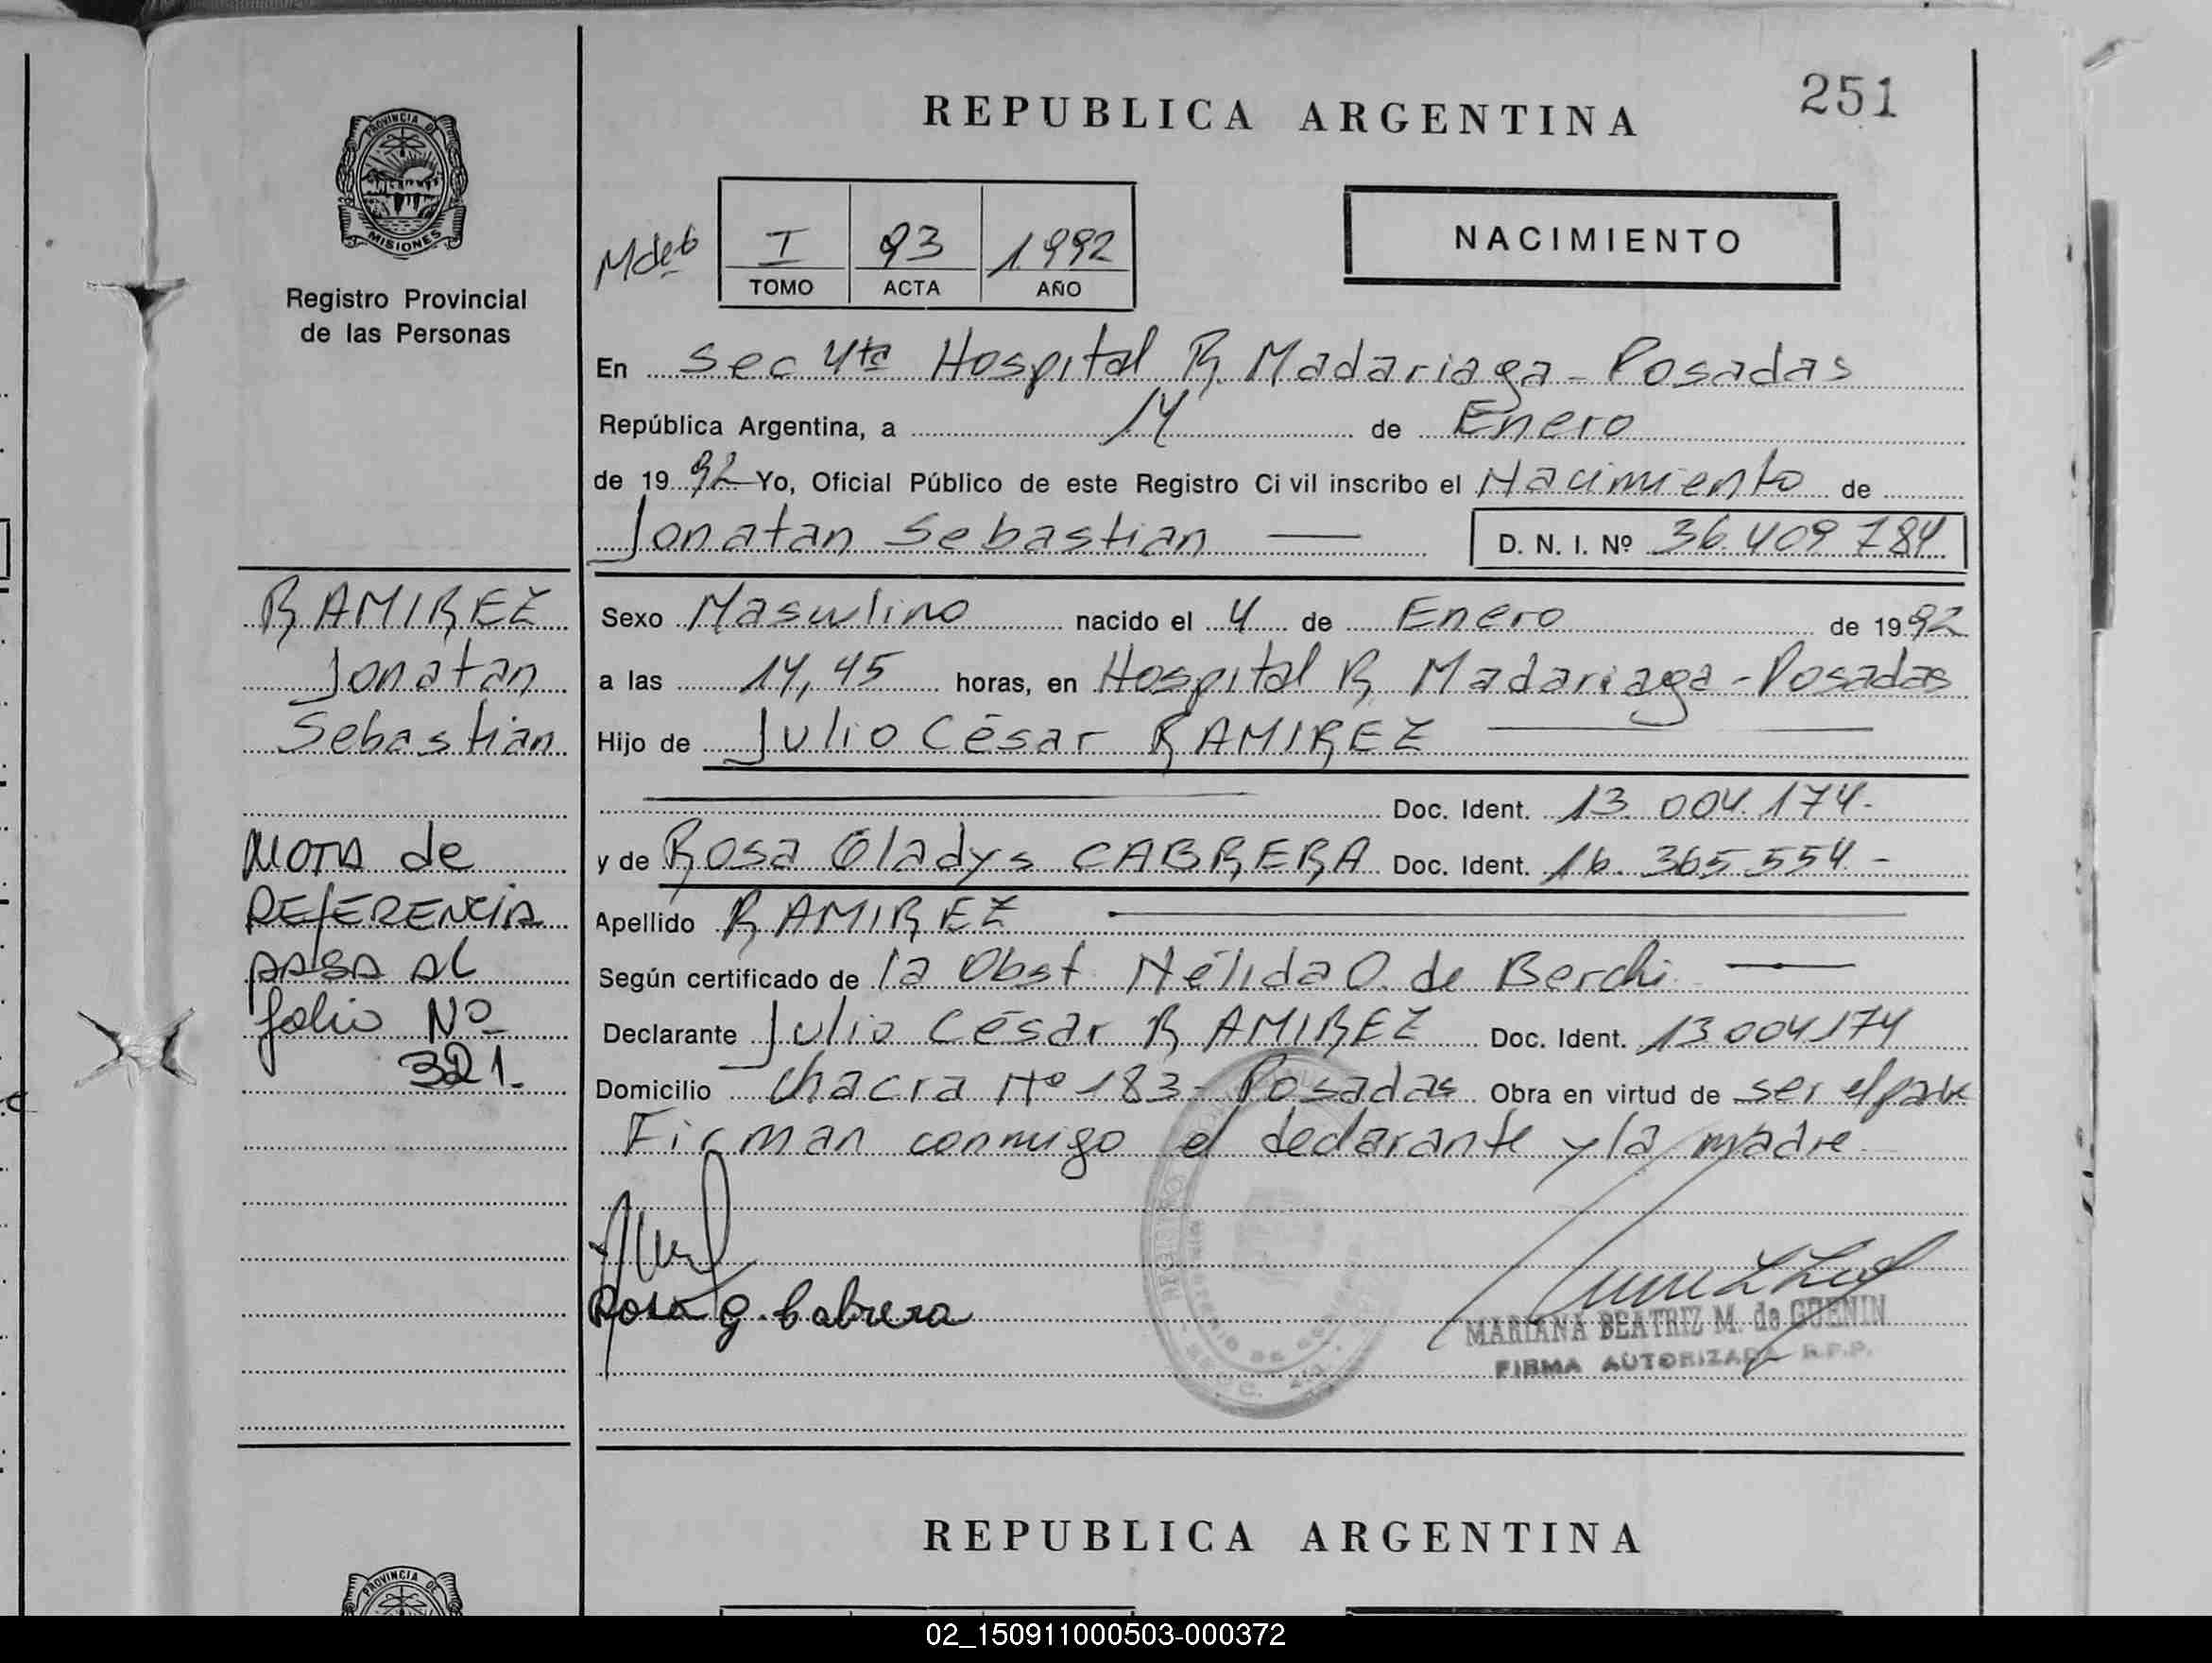 251
REPUBLICA ARGENTINA
PROVINCIA DE
MISIONES
Registro Provincial
de las Personas
I 93 1992
TOMO ACTA AÑO
NACIMIENTO
En Sec 4ta Hospital R. Madariaga - Posadas
República Argentina, a 14 de Enero
de 1992 Yo, Oficial Público de este Registro Civil inscribo el Nacimiento de
Jonatan Sebastian — D. N. I. Nº 36.409.784
RAMIREZ
Jonatan
Sebastian
Nota de
REfERENCIA
PASA AL
folio Nº
321.
Sexo Masculino nacido el 4 de Enero de 1992
a las 14,45 horas, en Hospital R. Madariaga - Posadas
Hijo de Julio César RAMIREZ
Doc. Ident. 13.004.174.-
y de Rosa Gladys CABRERA Doc. Ident. 16.365.554.-
Apellido RAMIREZ
Según certificado de la Obst. Nélida O. de Berchi.
Declarante Julio César RAMIREZ Doc. Ident. 13.004174
Domicilio Chacra Nº 183 - Posadas Obra en virtud de ser el padre
Firman conmigo el declarante y la madre.
Rosa g. Cabrera
MARIANA BEATRIZ M. de GUENIN
FIRMA AUTORIZADA R.P.P.
REPUBLICA ARGENTINA
PROVINCIA DE
02_150911000503-000372